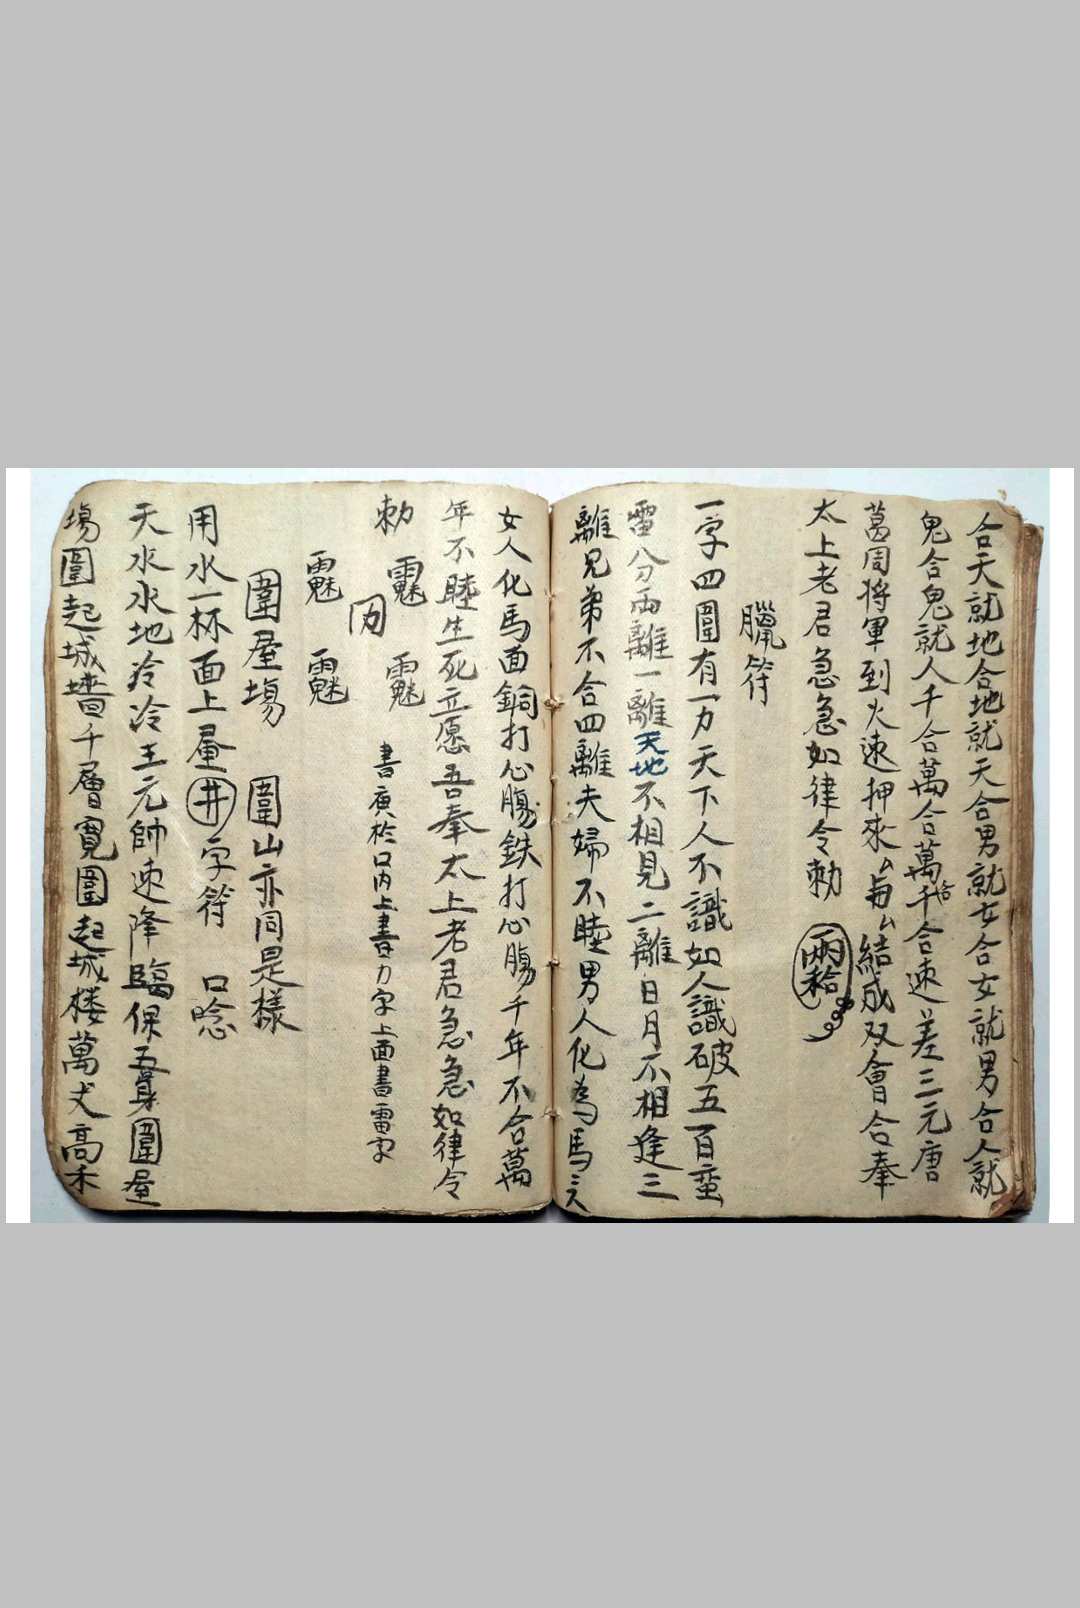 合天就地合地就天合男就女合女就男合人就
鬼合鬼就人千合萬合萬千合速差三元唐
葛周将軍到火速押來厶与厶結成双會合奉
太上老君急急如律令勅
臘符
一字四圍有一力天下人不識如人識破五百蛮
雷分兩離一離天地不相見二離日月不相逢三
離兄弟不合四離夫婦不睦男人化為馬
女人化馬面銅打心膓鉄打心膓千年不合萬
年不睦生死立愿吾奉太上老君急急如律令
勅
書廣於口内上書力字上面書雷字
圍屋場 圍山亦同是樣
用水一杯面上畫井字符 口唸
天水水地冷冷王元帥速降臨保五身圍屋
場圍起城墻千層寬圍起城楼萬丈高禾